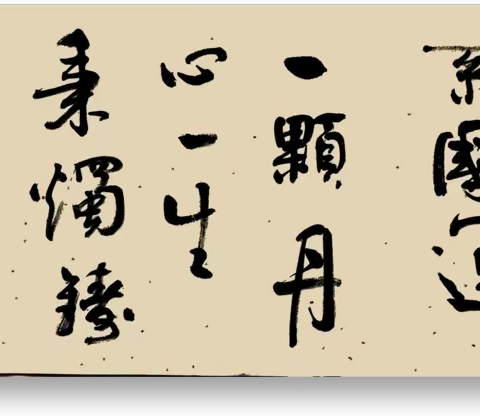 系國運
一顆丹
心一生
秉燭鑄